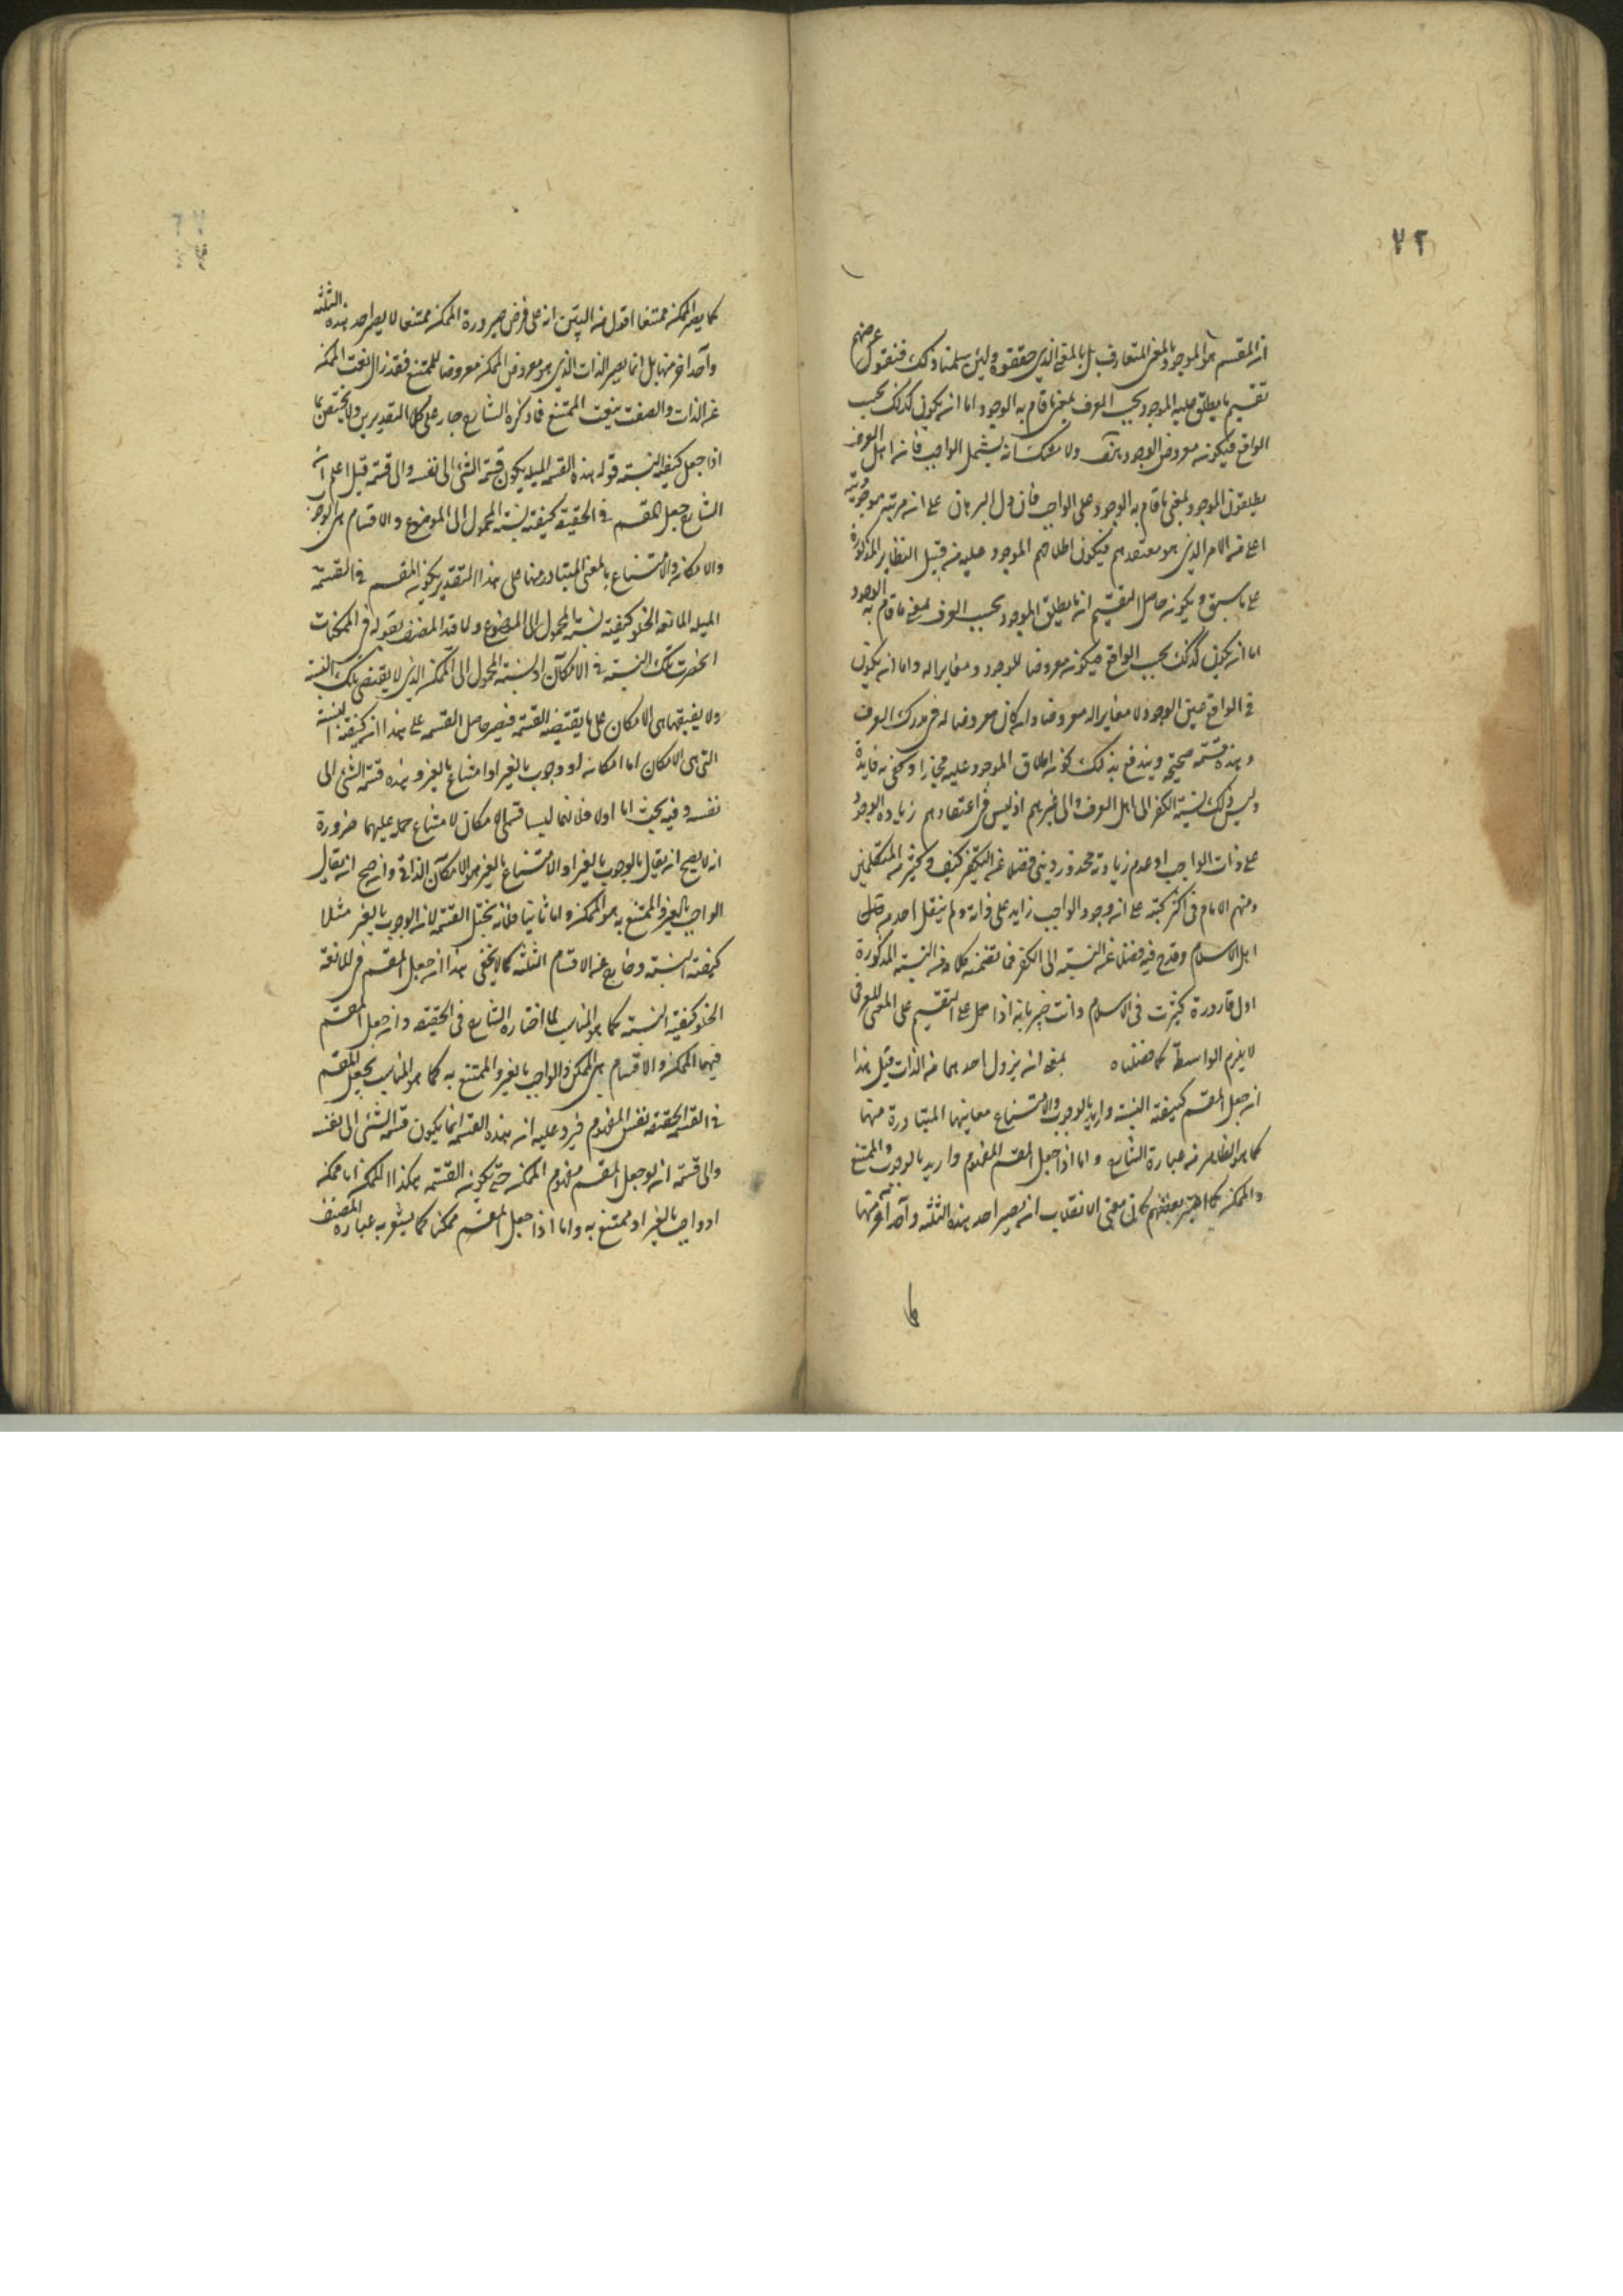 ٧٢
ان المقسم هو الموجود بالمعنى المتعارف بل بالمعنى الذي حققوه ولئن سلمنا ذلك فنقول غرضهم
تقسيم ما يطلق عليه الموجود بحسب العرف بمعنى ما قام به الوجود اما ان يكون كذلك بحسب
الواقع فيكون معروض الوجود ولا شك انه يشمل الواجب فان اهل العرف
يطلقون الموجود بمعنى ما قام به الوجود على الواجب فان دل البرهان على ان مرتبته موجودية
اعلى من الامر الذي هو معتقدهم فيكون اطلاقهم الموجود عليه من قبيل النظاير المذكورة
على ما سبق ويكون حاصل التقسيم ان ما يطلق الموجود بحسب العرف بمعنى ما قام به الوجود
اما ان يكون كذلك بحسب الواقع فيكون معروضا للوجود ومغايرا له واما ان يكون
في الواقع عين الوجود لا مغايرا له معروضا وان كان معروضا له في مدرك العرف
وهذه قسمة صحيحة ويندفع بذلك كون اطلاق الموجود عليه مجازا وكفى به فايدة
وليس ذلك نسبة الكفر الى اهل العرف والى غيرهم اذ ليس في اعتقادهم زيادة الوجود
على ذات الواجب او عدم زيادته محذور ديني فضلا عن التكفير كيف وكثير من المتكلمين
ومنهم الامام في اكثر كتبه على ان وجود الواجب زايد على ذاته ولم ينقل احد من
اهل الاسلام وقدح فيه فضلا عن النسبة الى الكفر فما تضمنه كلامه من النسبة المذكورة
اول قارورة كسرت في الاسلام وانت خبير بانه اذا حمل على التقسيم على المعنى العرفي
لا يلزم الواسطة كما فصلناه بمعنى ان يزول احدهما عن الذات قيل هذا
ان جعل المقسم كيفية النسبة واريد بالوجوب والامتناع معانيها المتبادرة منها
كما هو الظاهر من عبارة الشارح واما اذا جعل المقسم المفهوم واريد بالوجوب والممتنع
والممكن كما اعتبر بعضهم كان معنى الانقلاب ان يصير احد هذه الثلثة واحدا اخر منها
كما يصير الممكن ممتنعا اقول من البين ان على فرض صيرورة الممكن ممتنعا لا يصير احد هذه الثلثة
واحدا اخر منها بل انما يصير الذات الذي هو معروض الممكن معروضا للممتنع فقد زال نعت الممكن
عن الذات واتصف بنعت الممتنع فما ذكره الشارح جار على كلا التقديرين ولا يختص بما
اذا جعل كيفية النسبة قوله هذه القسمة يكون قسمة الشئ الى نفسه والى قسمه قيل اعلم ان
الشارح جعل المقسم في الحقيقة كيفية نسبة المحمول الى الموضوع والاقسام هي الوجوب
والامكان والامتناع بالمعنى المتبادر منها على هذا التقدير يكون المقسم في القسمة
المانعة الخلو كيفية نسبة المحمول الى الموضوع ولما قيد المصنف بقوله في الممكنات
انحصرت تلك النسبة في الامكان اذ نسبة المحمول الى الممكن الذي لا يقتضي تلك النسبة
ولا يضيقها هي الامكان على ما يقتضيه القسمة فيصير حاصل القسمة على هذا ان كيفية النسبة
التي هي الامكان اما امكان او وجوب بالغير او امتناع بالغير وهذه قسمة الشئ الى
نفسه وفيه بحث اما اولا فلانهما ليسا قسمي الامكان لامتناع حمله عليهما ضرورة
انه لا يصح ان يقال الوجوب بالغير او الامتناع بالغير هو الامكان الذاتي وان صح ان يقال
الواجب بالغير والممتنع به هو الممكن واما ثانيا فلانه يختل القسمة لان الوجوب بالغير مثلا
كيفية النسبة وخارج عن الاقسام الثلثة كما لا يخفى هذا ان جعل المقسم في المانعة
الخلو كيفية النسبة كما هو المناسب لما اختاره الشارح في الحقيقة وان جعل المقسم
فيهما الممكن والاقسام هي الممكن والواجب بالغير والممتنع به كما هو المناسب لجعل المقسم
في القسمة الحقيقية نفس المفهوم فيرد عليه ان هذه القسمة انما يكون قسمة الشئ الى نفسه
والى قسمه ان لو جعل المقسم مفهوم الممكن حتى يكون القسمة هكذا الممكن اما ممكن
او واجب بالغير او ممتنع به واما اذا جعل المقسم ممكنا كما يشعر به عبارة المصنف